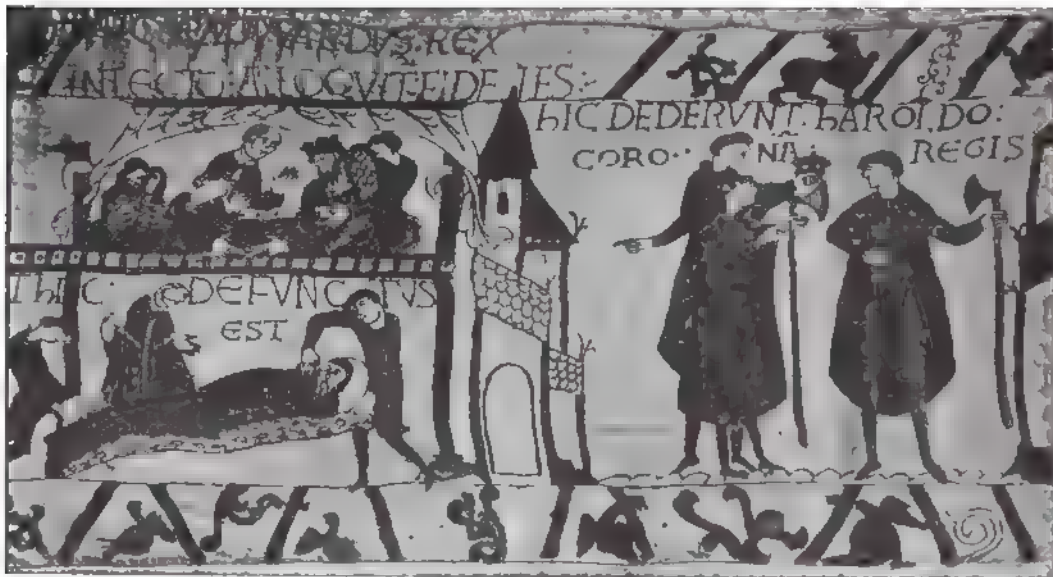 REX
IN LECTO: ALLOQVIT: FIDELES:
hIC DEDERVNT: hAROLDO:
CORO·· NÃ: REGIS
hIC · DEFVNCTVS
EST